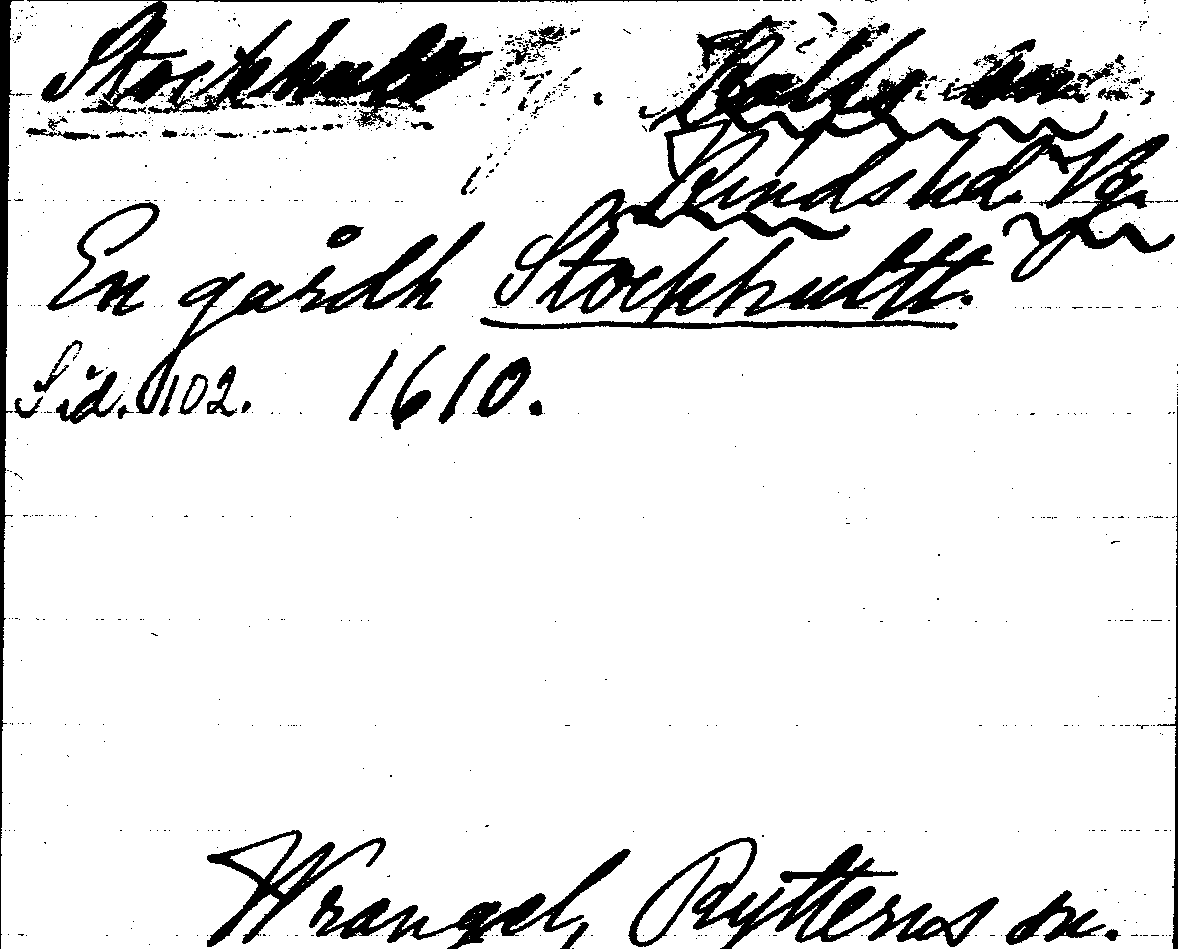 Stockhult Kölfs sn.
Kinds hd. Vg.
En gårdh Stockhultt.
Sid. 102. 1610.
Wrangel, Rytterns sn.